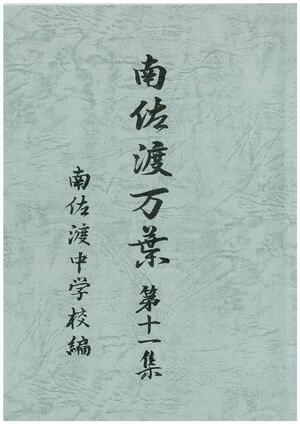 南佐渡万葉 第十一集
南佐渡中学校編